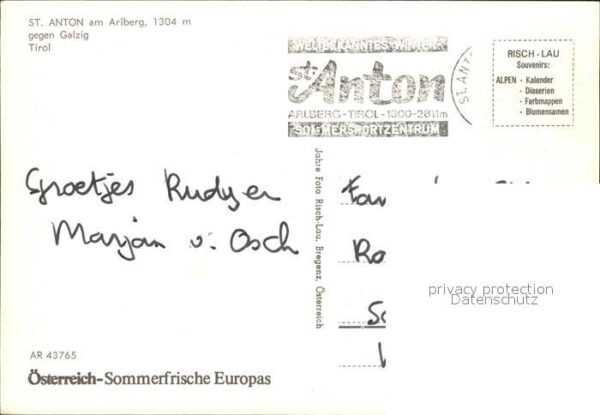 ST. ANTON am Arlberg, 1304 m
gegen Galzig
Tirol
WELTBEKANNTES WINTER-
St. Anton
ARLBERG-TIROL-1300-2811m
SOMMERSPORTZENTRUM
ST. ANT
RISCH-LAU
Souvenirs:
ALPEN - Kalender
- Diaserien
- Farbmappen
- Blumensamen
Groetjes Rudy en
Marjan v. Osch
Jahre Foto Risch-Lau, Bregenz, Österreich
Fam
Ro
privacy protection
Datenschutz
AR 43765
Österreich-Sommerfrische Europas